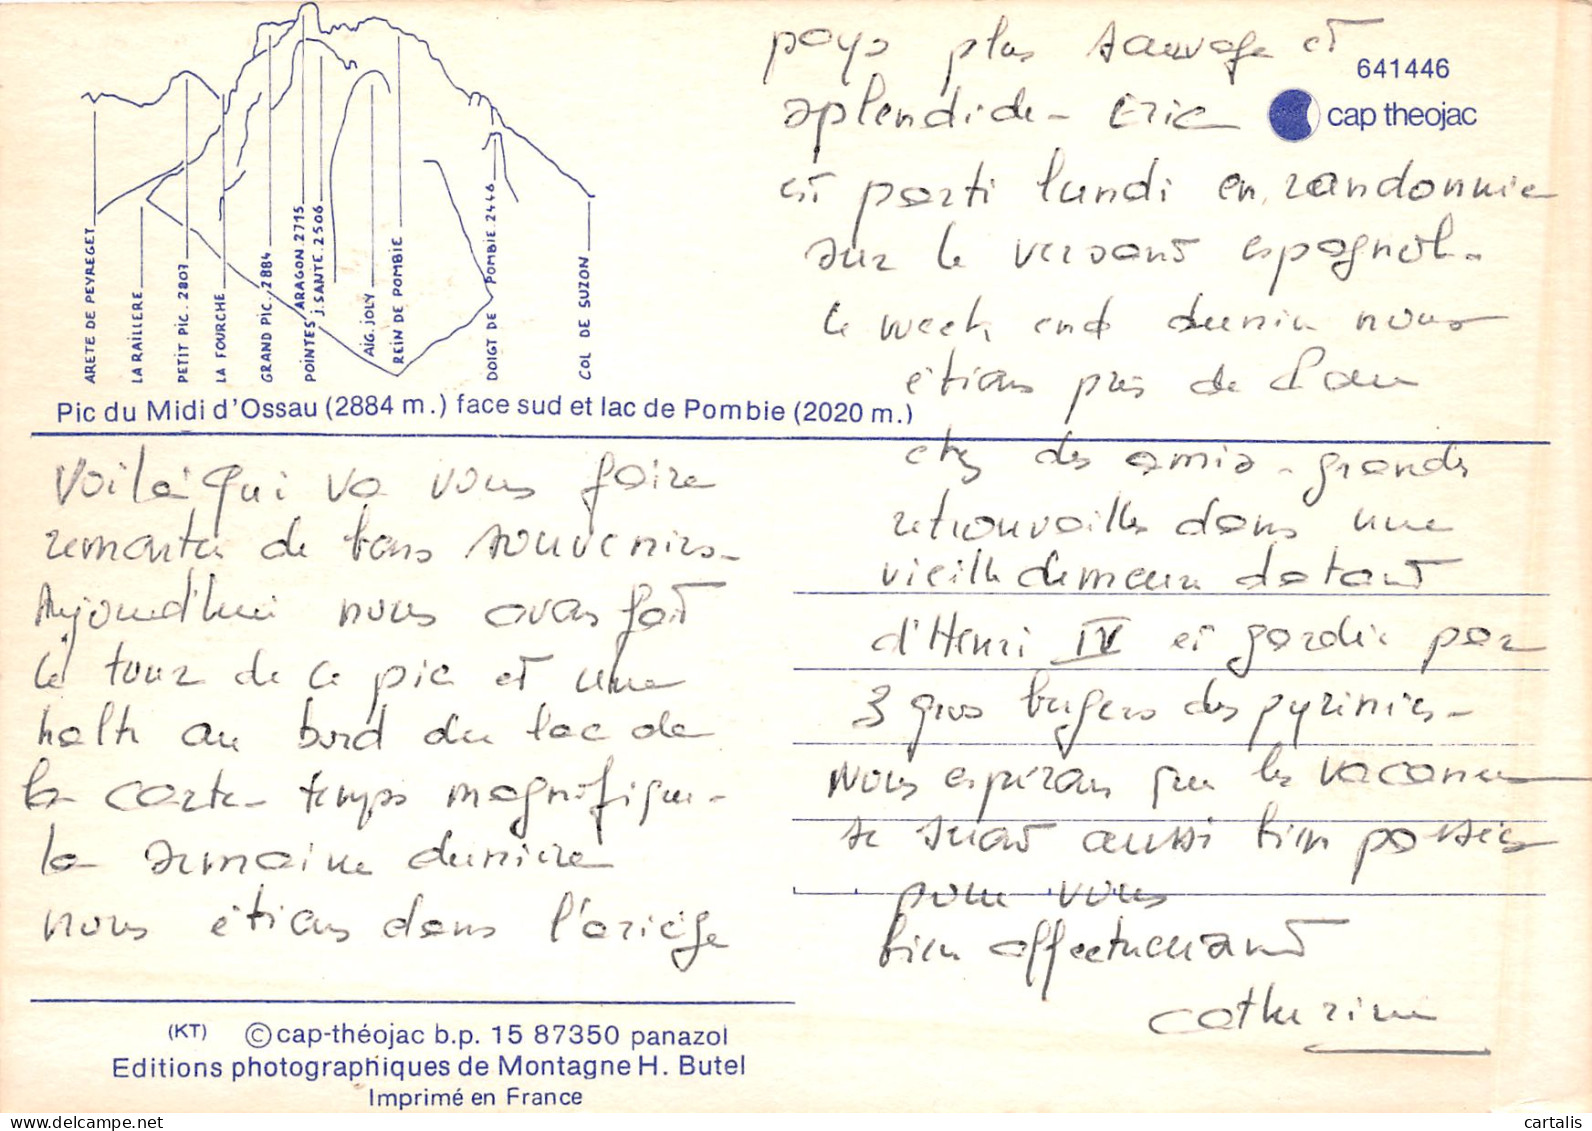 ARETE DE PEYREGET
LA RAILLERE
PETIT PIC. 2807
LA FOURCHE
GRAND PIC. 2884
POINTES ARAGON 2715
J. SANTE. 2506
AIG. JOLY
REIN DE POMBIE
DOIGT DE POMBIE 2446
COL DE SUZON
Pic du Midi d'Ossau (2884 m.) face sud et lac de Pombie (2020 m.)
Voilà qui va vous faire
remonter de bons souvenirs-
Aujourd'hui nous avons fait
le tour de ce pic et une
halte au bord du lac de
la carte- temps magnifique-
la semaine dernière
nous étions dans l'ariège
pays plus sauvage et
splendide- Eric
est parti lundi en randonnée
sur le versant espagnol-
le week end dernier nous
étions près de Pau
chez des amis- grandes
retrouvailles dans une
vieille demeure datant
d'Henri IV et gardée par
3 gros bergers des pyrénées-
Nous espérons que les vacances
se seront aussi bien passées
pour vous
bien affectueusement
Catherine
641446
cap theojac
(KT) © cap-théojac b.p. 15 87350 panazol
Editions photographiques de Montagne H. Butel
Imprimé en France
cartalis